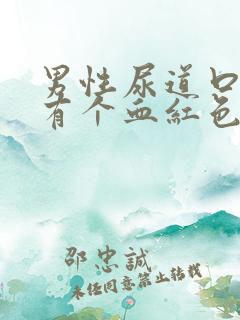 男性尿道口
有个血红色
邵忠誠
未经同意禁止转载